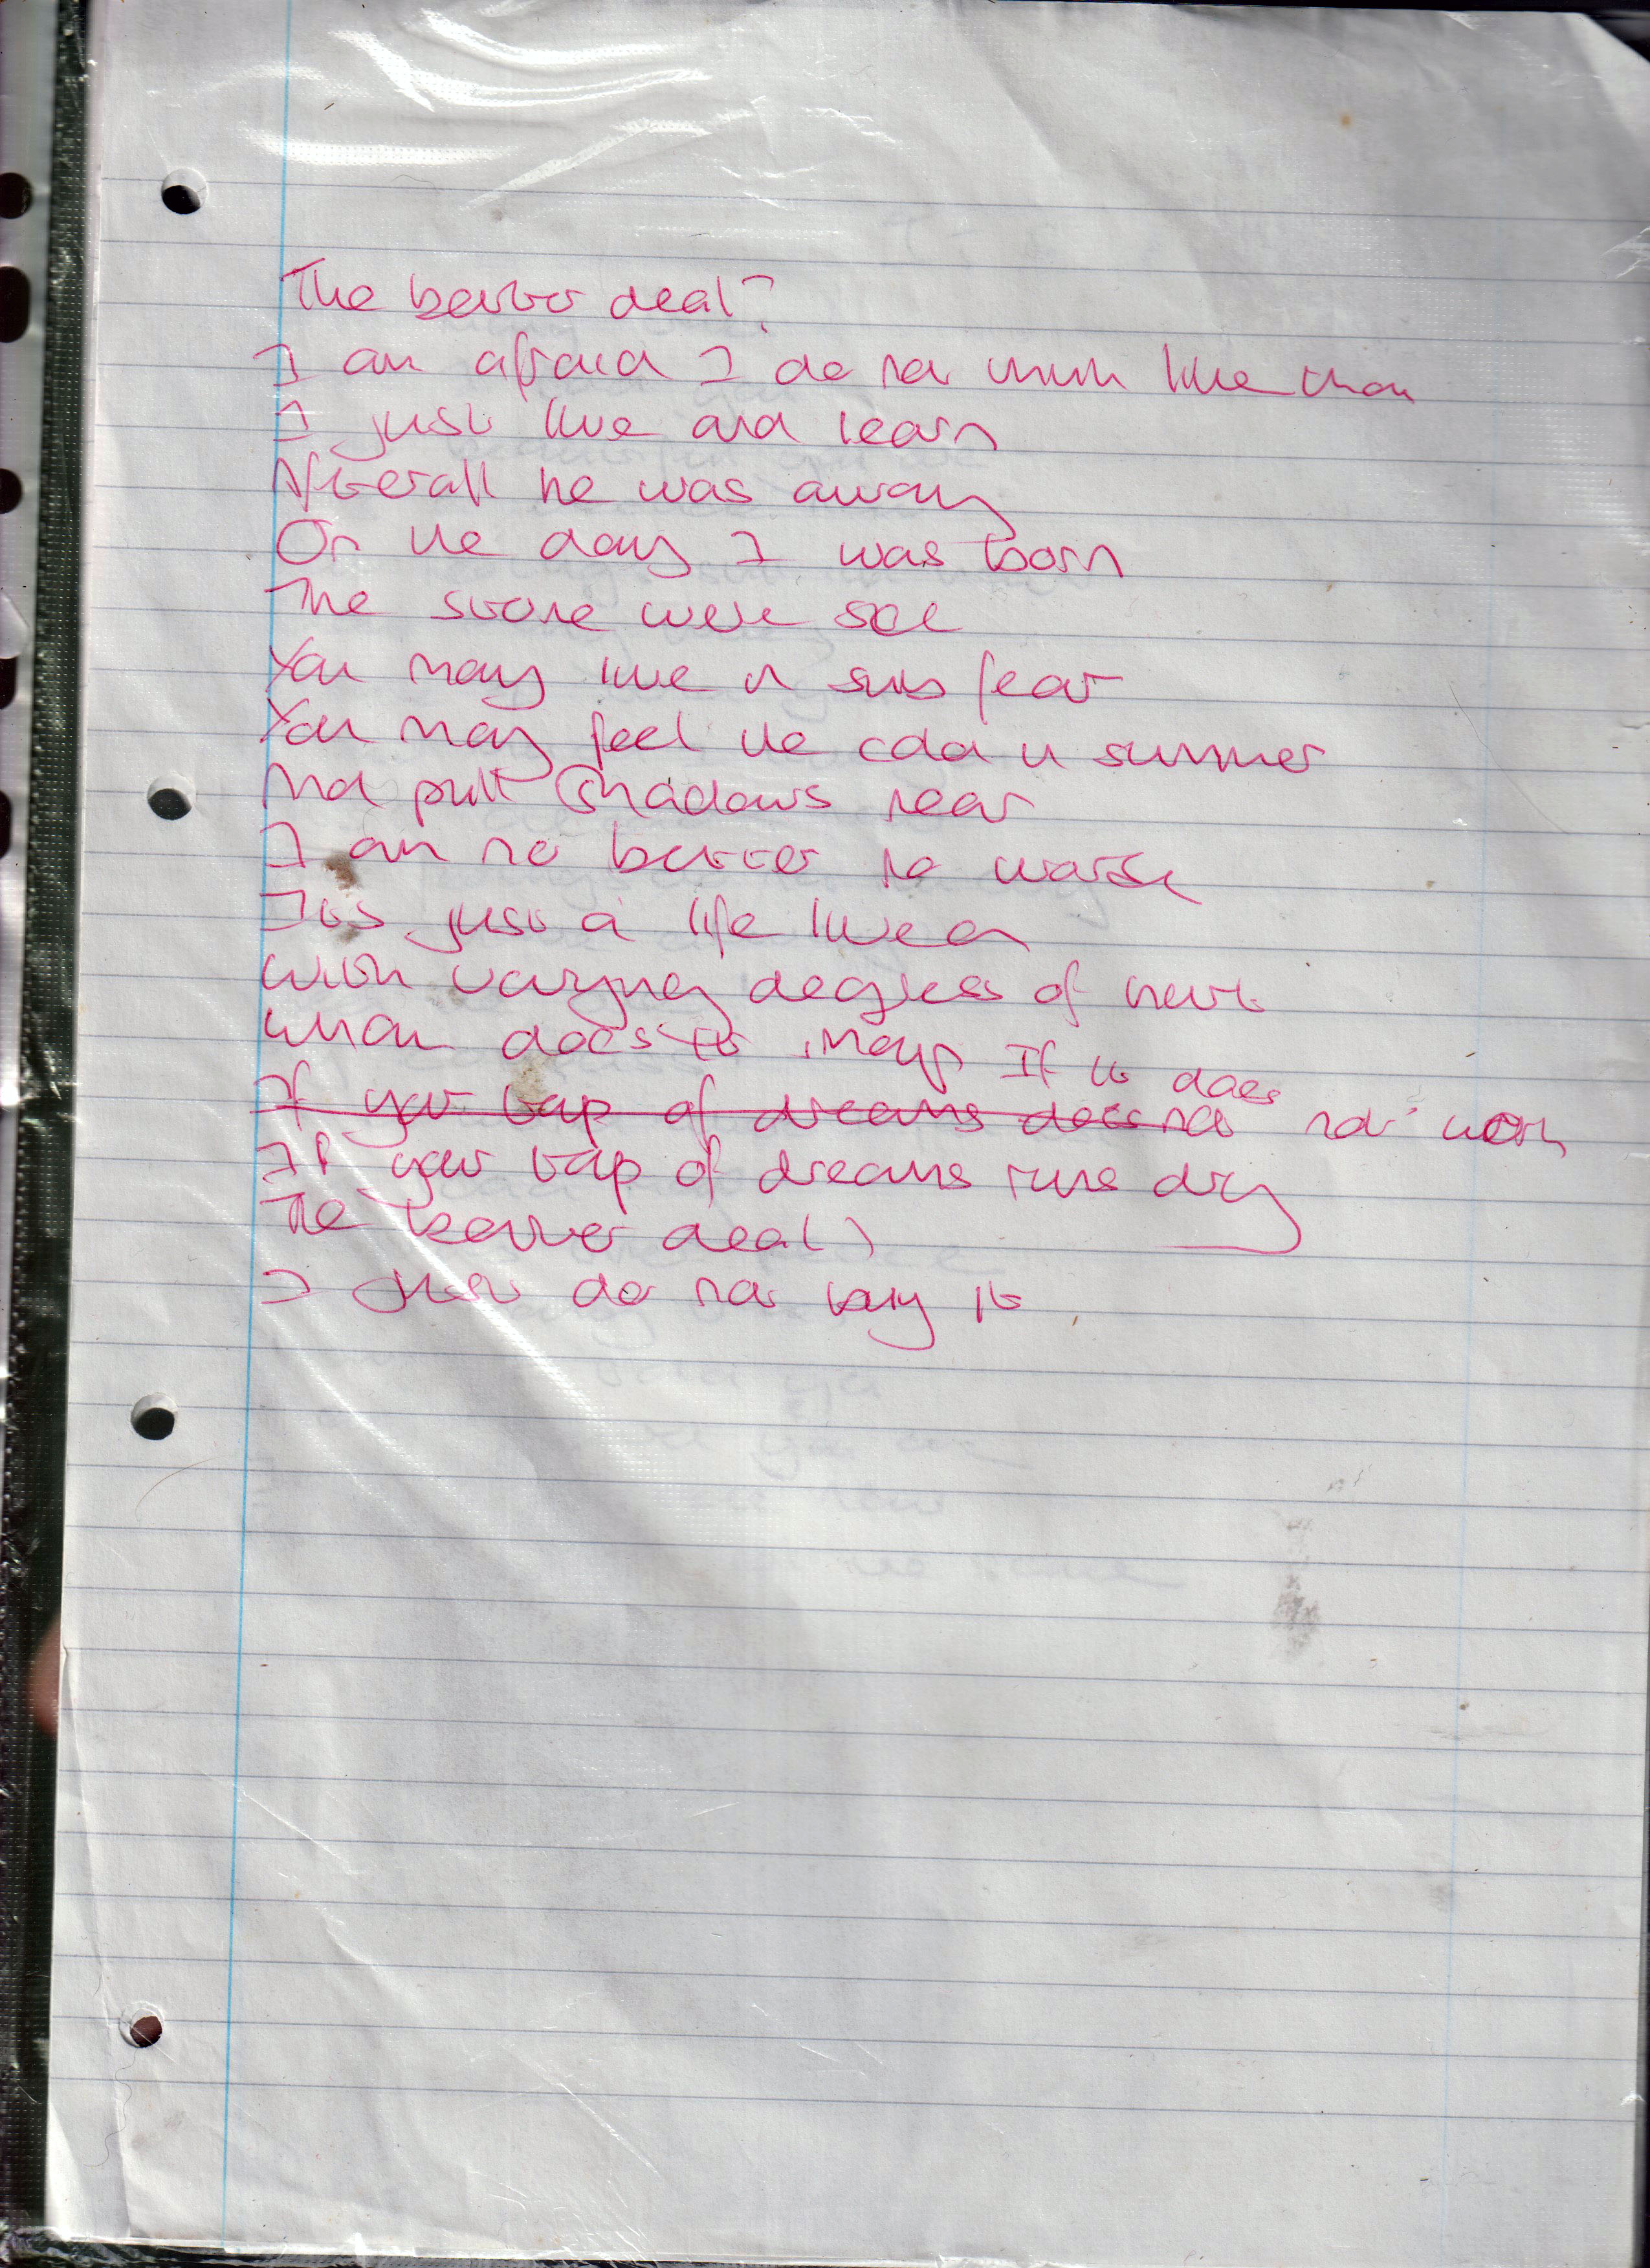 The better deal?
I am afraid I do not think like that
I just live and learn
Afterall he was away
On the day I was born
The stone were set
You may live in sub fear
You may feel the cold in summer
And pull shadows near
I am no better no worse
Its just a life lived
With varying degrees of hurt
What does it mayp If it does
~~If your tap of dreams does not~~ not work
If your tap of dreams runs dry
The better deal)
I just do not buy it